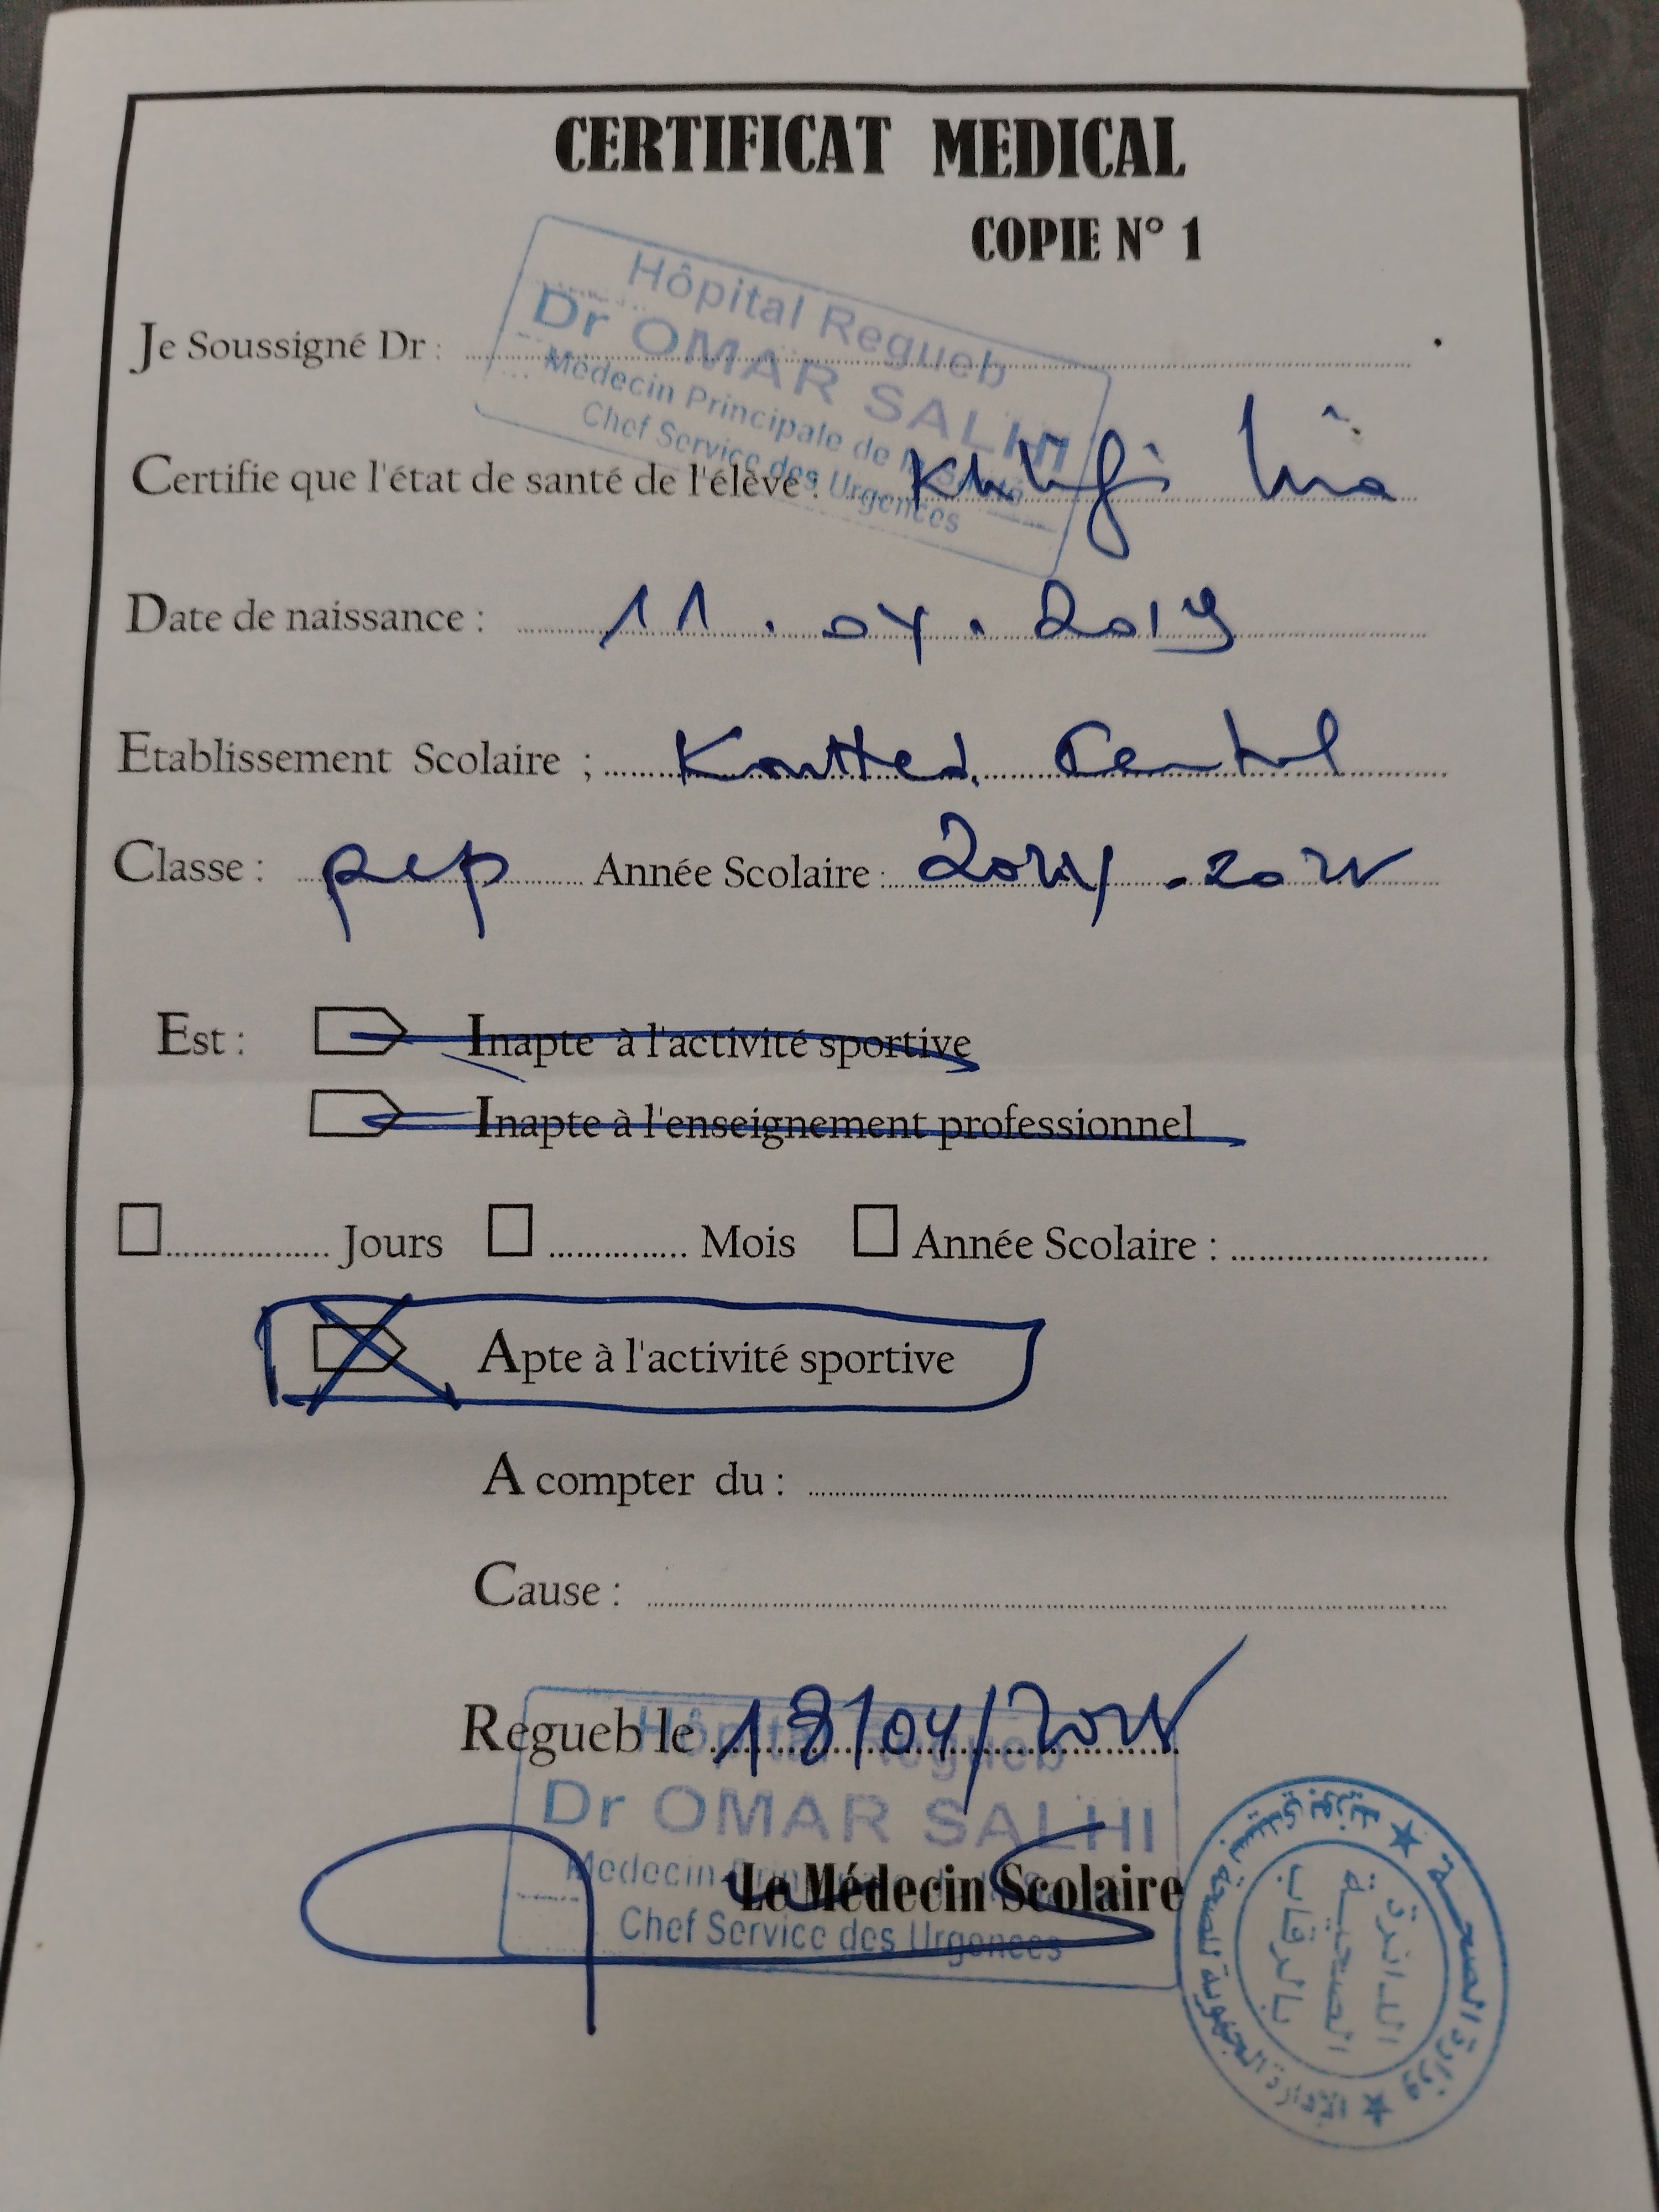 CERTIFICAT MEDICAL
COPIE N° 1
Hôpital Regueb
Dr OMAR SALHI
Médecin Principale de
Chef Service des Urgences
Je Soussigné Dr :
Certifie que l'état de santé de l'élève :
Date de naissance : 11.04.2019
Etablissement Scolaire ;
Classe : pep Année Scolaire :
Est : Inapte à l'activité sportive
Inapte à l'enseignement professionnel
Jours Mois Année Scolaire :
Apte à l'activité sportive
A compter du :
Cause :
Regueb le 18/04/
Hôpital Regueb
Dr OMAR SALHI
Médecin
Le Médecin Scolaire
Chef Service des Urgences
وزارة الصحة ★ الإدارة الجهوية للصحة بسيدي بوزيد ★
الدائرة
الصحية
بالرقاب